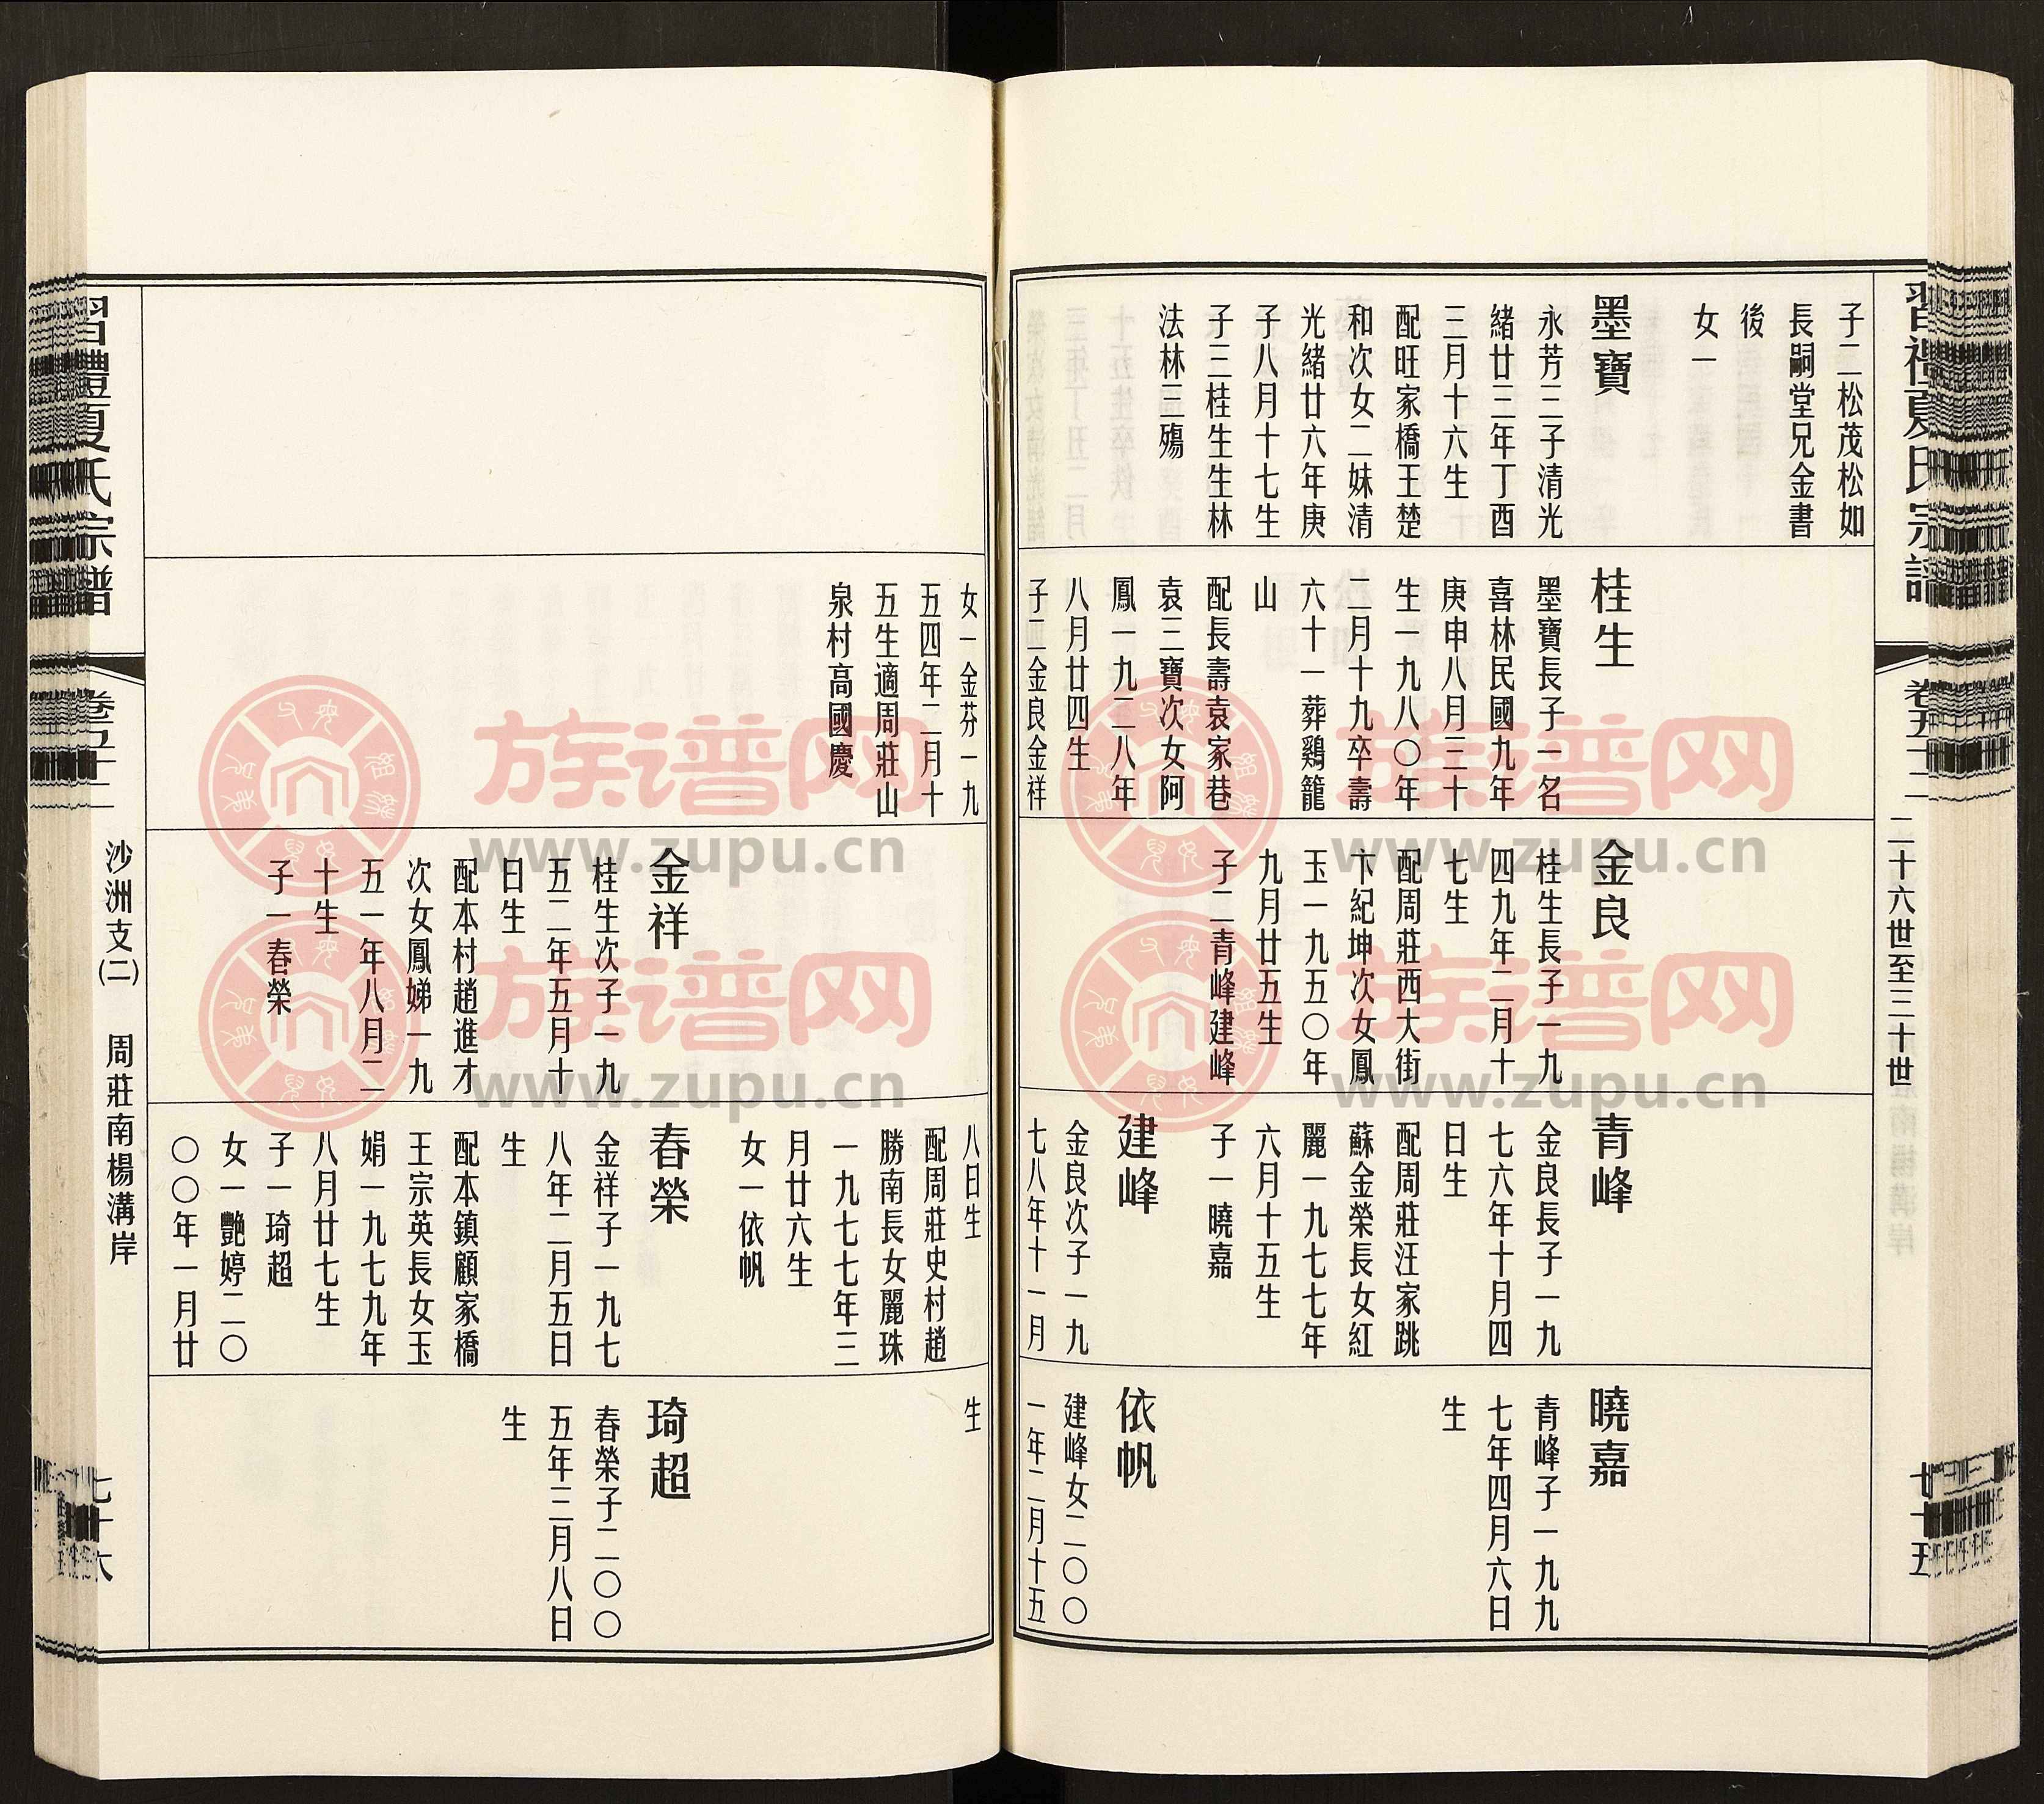 習禮夏氏宗譜
卷五十二
二十六世至三十世
子二松茂松如
長嗣堂兄金書
後
女一
墨寶
永芳三子清光
緒廿三年丁酉
三月十六生
配旺家橋王楚
和次女二妹清
光緒廿六年庚
子八月十七生
子三桂生生林
法林三殤
桂生
墨寶長子一名
喜林民國九年
庚申八月三十
生一九八〇年
二月十九卒壽
六十一葬鷄籠
山
配長壽袁家巷
袁三寶次女阿
鳳一九二八年
八月廿四生
子二金良金祥
金良
桂生長子一九
四九年二月十
七生
配周莊西大街
卞紀坤次女鳳
玉一九五〇年
九月廿五生
子二青峰建峰
青峰
金良長子一九
七六年十月四
日生
配周莊汪家跳
蘇金榮長女紅
麗一九七七年
六月十五生
子一曉嘉
建峰
金良次子一九
七八年十一月
曉嘉
青峰子一九九
七年四月六日
生
依帆
建峰女二〇〇
一年二月十五
女一金芬一九
五四年二月十
五生適周莊山
泉村高國慶
金祥
桂生次子一九
五二年五月十
日生
配本村趙進才
次女鳳娣一九
五一年八月二
十生
子一春榮
八日生
配周莊史村趙
勝南長女麗珠
一九七七年三
月廿六生
女一依帆
春榮
金祥子一九七
八年二月五日
生
配本鎮顧家橋
王宗英長女玉
娟一九七九年
八月廿七生
子一琦超
女一艷婷二〇
〇〇年一月廿
生
琦超
春榮子二〇〇
五年三月八日
生
習禮夏氏宗譜
卷五十二
沙洲支(二)
周莊南楊溝岸
七十六
族谱网
www.zupu.cn
族谱网
www.zupu.cn
族谱网
www.zupu.cn
族谱网
www.zupu.cn